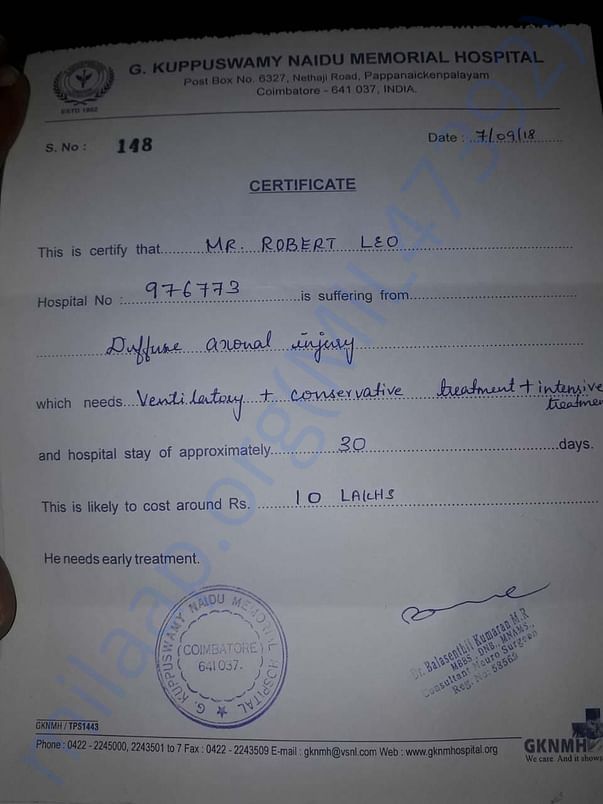 G. KUPPUSWAMY NAIDU MEMORIAL HOSPITAL
Post Box No. 6327, Nethaji Road, Pappanaickenpalayam
Coimbatore - 641 037, INDIA.
ESTD 1952
S. No : 148
Date : 7/09/18
CERTIFICATE
This is certify that MR. ROBERT LEO
Hospital No : 976773 is suffering from
Diffuse axonal injury
which needs Ventilatory + conservative treatment + intensive
treatmen
and hospital stay of approximately 30 days.
This is likely to cost around Rs. 10 LAKHS
He needs early treatment.
G. KUPPUSWAMY NAIDU MEMORIAL HOSPITAL
(COIMBATORE)
641 037.
Dr. Balasenthil Kumaran M.R
MBBS., DNB., MNAMS.,
Consultant Neuro Surgeon
Reg. No: 58565
GKNMH / TPS1443
Phone : 0422 - 2245000, 2243501 to 7 Fax : 0422 - 2243509 E-mail : gknmh@vsnl.com Web : www.gknmhospital.org
GKNMH
We care. And it shows
milaap.org(MIL_47392)